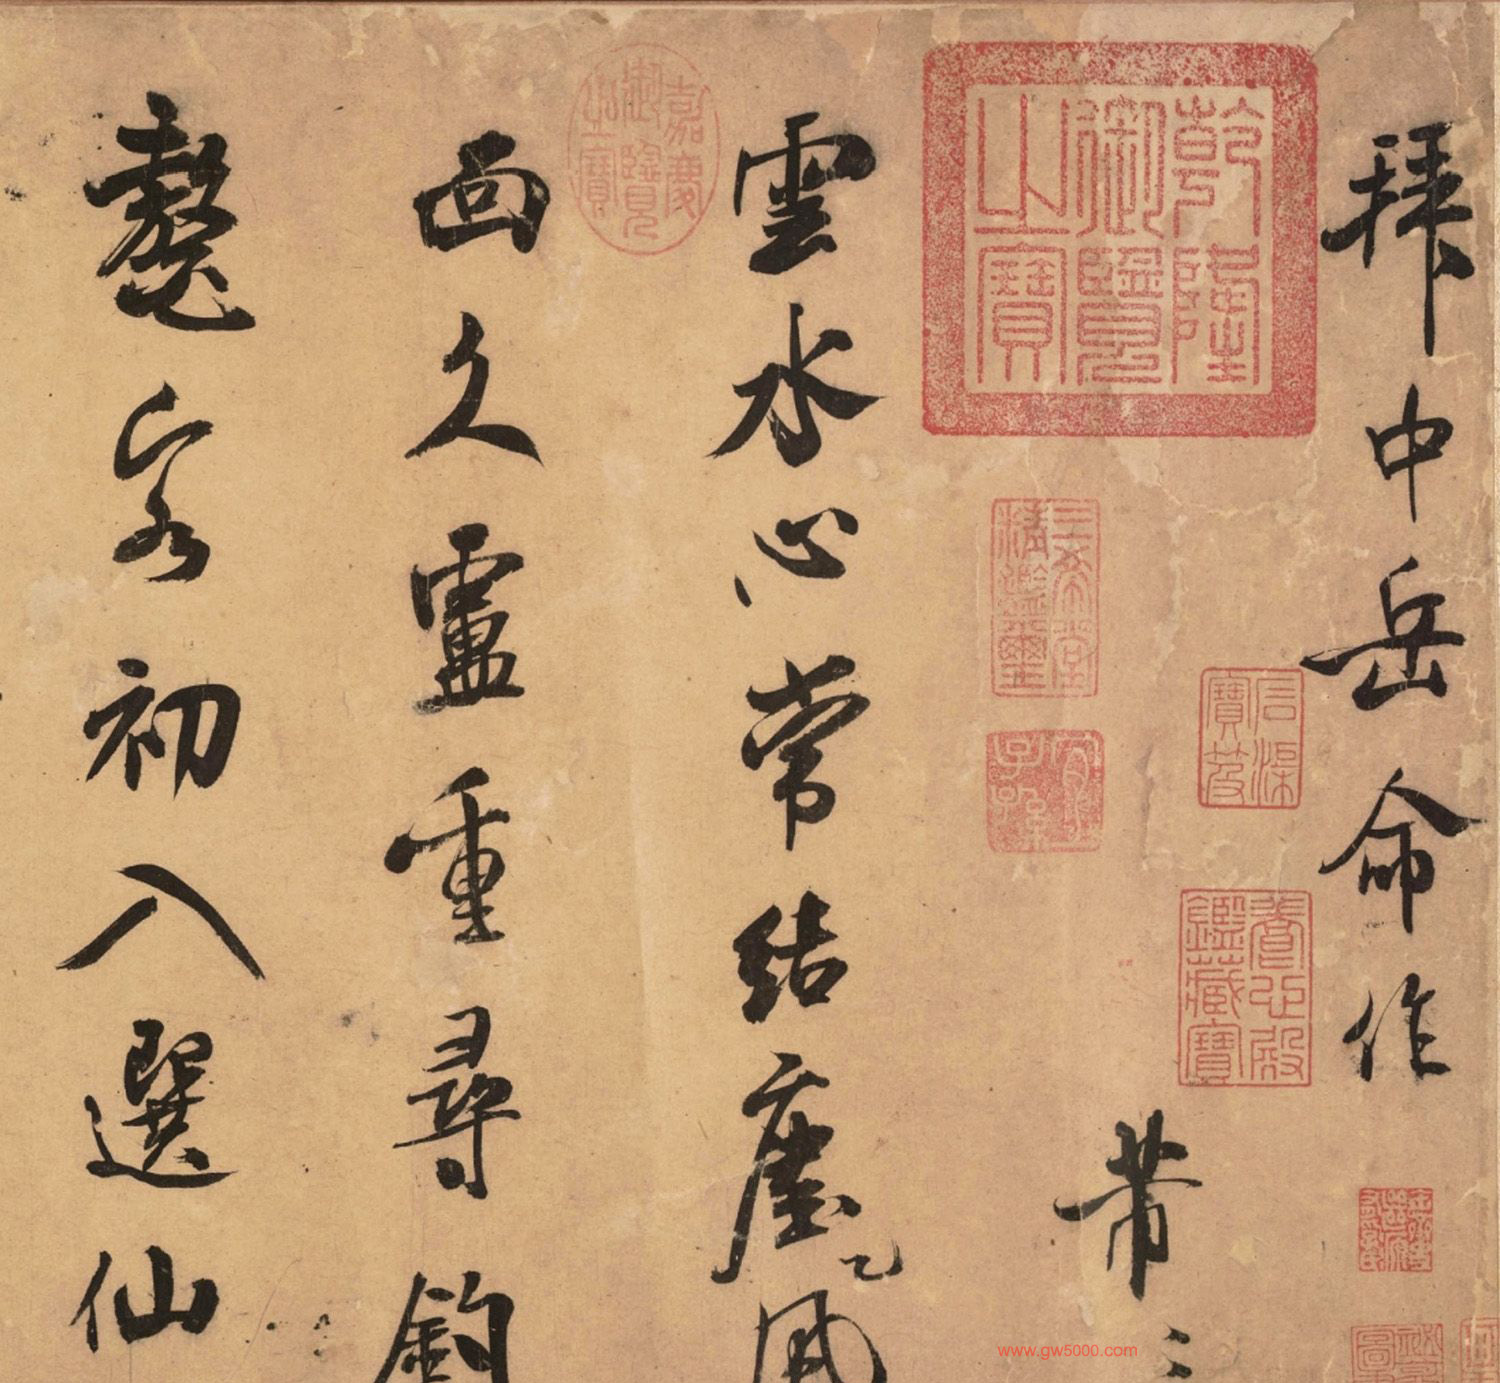 拜中岳命作
石渠寶笈
養心殿鑑藏寶
乾隆御覽之寶
三希堂精鑑璽
宜子孫
芾
雲水心常結塵風
嘉慶御覽之寶
面久盧重尋釣
鼇客初入選仙
www.gw5000.com